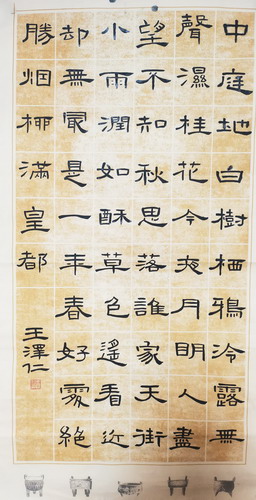 中庭地白樹栖鴉冷露無
聲濕桂花今夜月明人盡
望不知秋思落誰家天街
小雨潤如酥草色遙看近
却無最是一年春好處絕
勝烟柳滿皇都
王澤仁